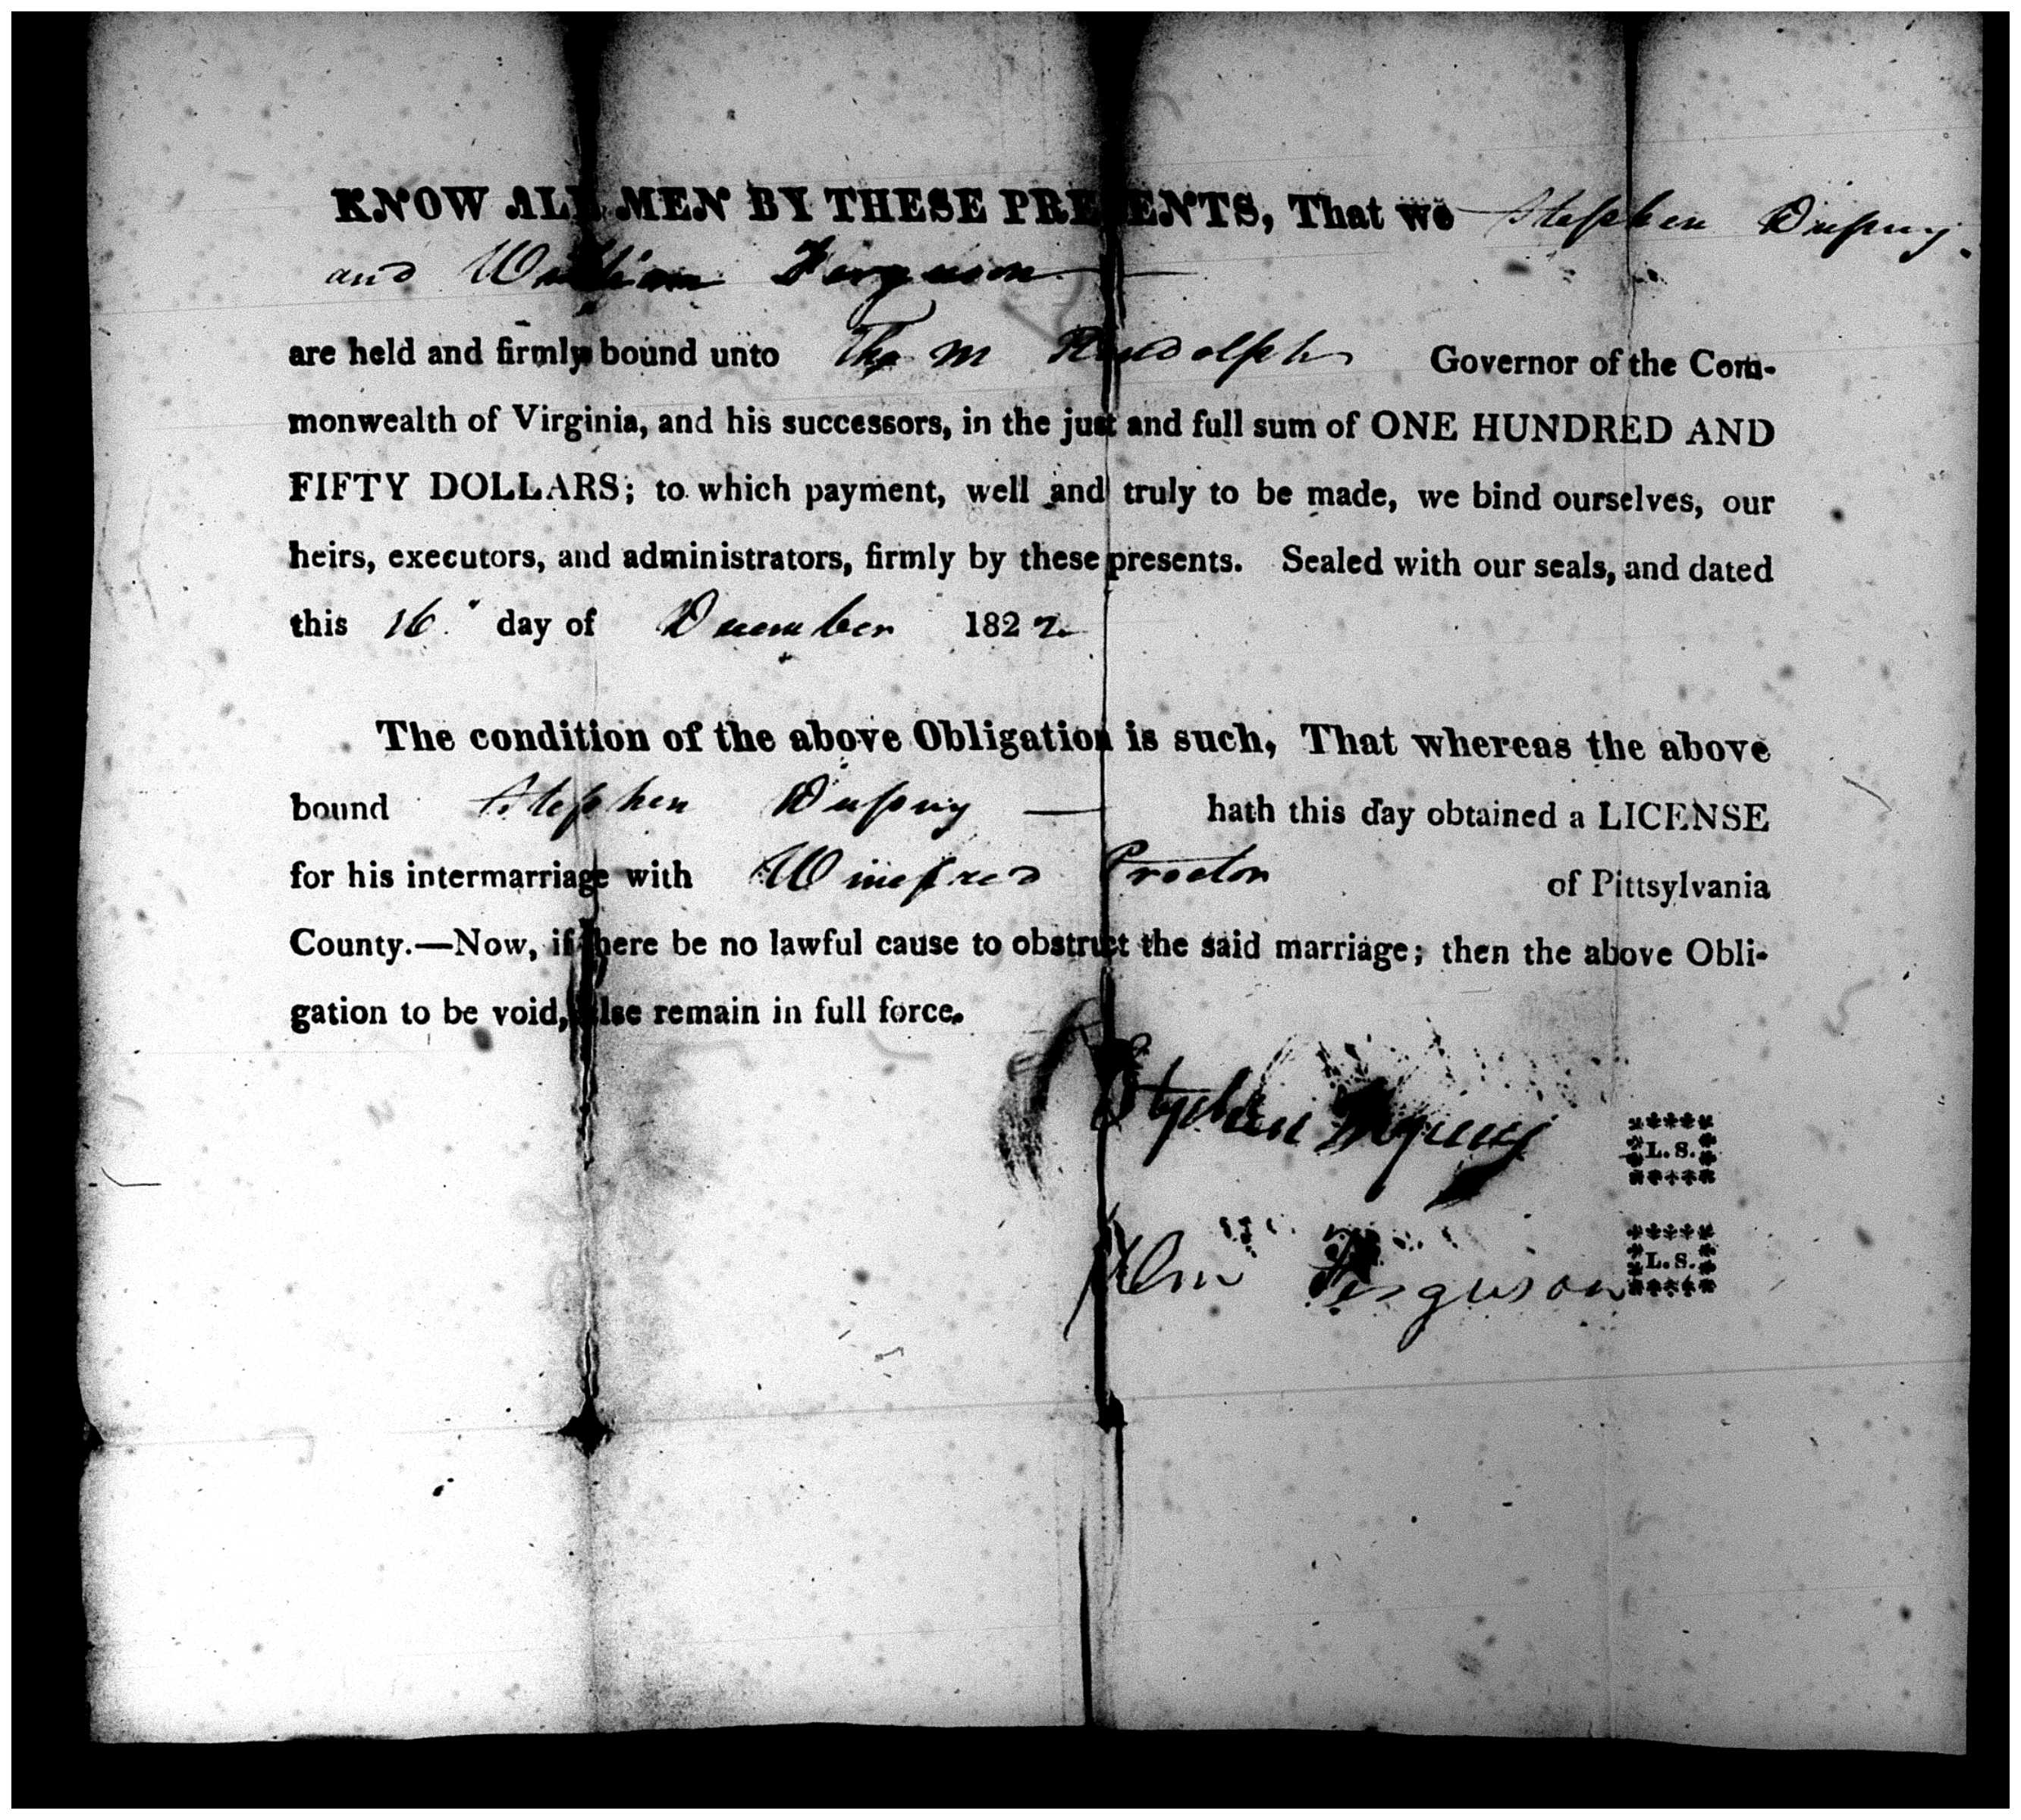 KNOW ALL MEN BY THESE PRESENTS, That we Stephen Dupuy
and William Ferguson
are held and firmly bound unto Tho M Randolph Governor of the Com-
monwealth of Virginia, and his successors, in the just and full sum of ONE HUNDRED AND
FIFTY DOLLARS; to which payment, well and truly to be made, we bind ourselves, our
heirs, executors, and administrators, firmly by these presents. Sealed with our seals, and dated
this 16 day of December 1822
The condition of the above Obligation is such, That whereas the above
bound Stephen Dupuy hath this day obtained a LICENSE
for his intermarriage with Winefred Proctor of Pittsylvania
County.—Now, if there be no lawful cause to obstruct the said marriage; then the above Obli-
gation to be void, else remain in full force.
Stephen L.S.
Wm Ferguson L.S.